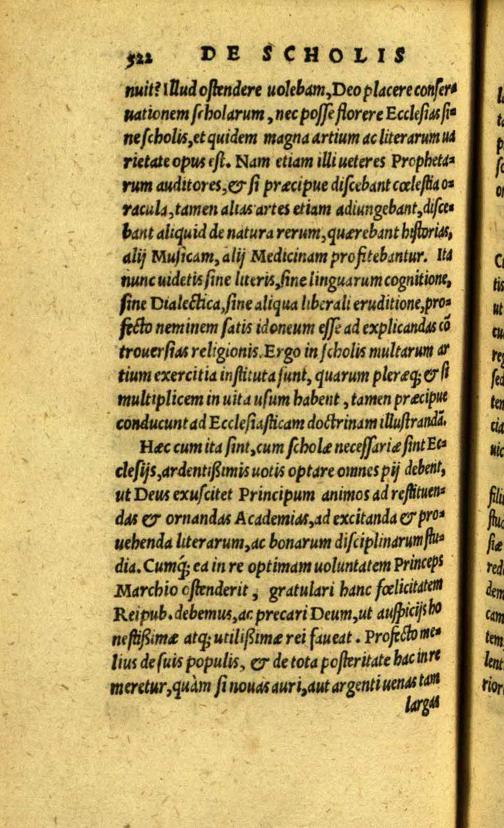 522 DE SCHOLIS
nuit? Illud ostendere uolebam, Deo placere conser-
uationem scholarum, nec posse florere Ecclesias si-
ne scholis, et quidem magna artium ac literarum ua
rietate opus est. Nam etiam illi ueteres Propheta-
rum auditores, & si præcipue discebant cœlestia o-
racula, tamen alias artes etiam adiungebant, disce-
bant aliquid de natura rerum, quærebant historias,
alij Musicam, alij Medicinam profitebantur. Ita
nunc uidetis sine literis, sine linguarum cognitione,
sine Dialectica, sine aliqua liberali eruditione, pro-
fecto neminem satis idoneum esse ad explicandas cō
trouersias religionis. Ergo in scholis multarum ar
tium exercitia instituta sunt, quarum pleræq; & si
multiplicem in uita usum habent, tamen præcipue
conducunt ad Ecclesiasticam doctrinam illustrandā.
Hæc cum ita sint, cum scholæ necessariæ sint Ec-
clesijs, ardentißimis uotis optare omnes pij debent,
ut Deus exuscitet Principum animos ad restituen-
das & ornandas Academias, ad excitanda & pro-
uehenda literarum, ac bonarum disciplinarum stu-
dia. Cumq́; ea in re optimam uoluntatem Princeps
Marchio ostenderit, gratulari hanc fœlicitatem
Reipub. debemus, ac precari Deum, ut auspicijs ho
nestißimæ atq; utilißimæ rei faueat. Profecto me-
lius de suis populis, & de tota posteritate hac in re
meretur, quàm si nouas auri, aut argenti uenas tam
largas